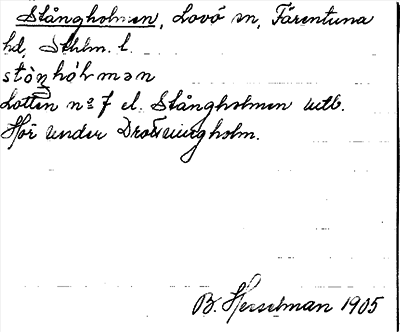 Stångholmen, Lovö sn, Färentuna
hd, Sthlm. l.
stòŋhól̀mən
Lotten nº 7 el. Stångholmen utb.
Hör under Drottningholm.
B. Hesselman 1905